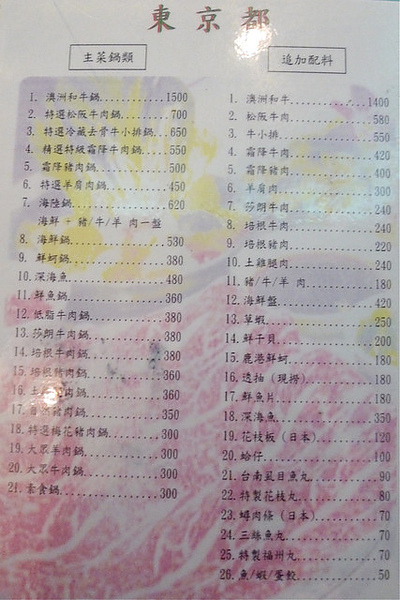 東京都
主菜鍋類
1. 澳洲和牛鍋............1500
2. 特選松阪牛肉鍋.......700
3. 特選冷藏去骨牛小排鍋...650
4. 精選特級霜降牛肉鍋.....550
5. 霜降豬肉鍋.............500
6. 特選羊肩肉鍋...........450
7. 海陸鍋.................620
海鮮 + 豬/牛/羊 肉一盤
8. 海鮮鍋.................530
9. 鮮蚵鍋.................380
10. 深海魚................480
11. 鮮魚鍋................360
12. 低脂牛肉鍋............380
13. 莎朗牛肉鍋............380
14. 培根牛肉鍋............380
15. 培根豬肉鍋............360
16. 土 肉鍋............360
17. 自然豬肉鍋............350
18. 特選梅花豬肉鍋........300
19. 大眾羊肉鍋............300
20. 大眾牛肉鍋............300
21. 素食鍋................300
追加配料
1. 澳洲和牛...............1400
2. 松阪牛肉...............580
3. 牛小排.................550
4. 霜降牛肉...............420
5. 霜降豬肉...............400
6. 羊肩肉.................300
7. 莎朗牛肉...............240
8. 培根牛肉...............240
9. 培根豬肉...............220
10. 土雞腿肉..............240
11. 豬/牛/羊 肉...........180
12. 海鮮盤................420
13. 草蝦..................250
14. 鮮干貝................200
15. 鹿港鮮蚵..............180
16. 透抽 (現撈)...........180
17. 鮮魚片................180
18. 深海魚................350
19. 花枝板 (日本).........120
20. 蛤仔..................100
21. 台南虱目魚丸..........90
22. 特製花枝丸............80
23. 蟳肉條 (日本).........70
24. 三絲魚丸..............70
25. 特製福州丸............70
26. 魚/蝦/蛋餃............50